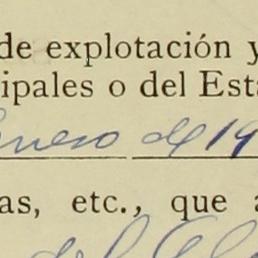 de explotación y
ipales o del Esta
enero de 19
as, etc., que a
del